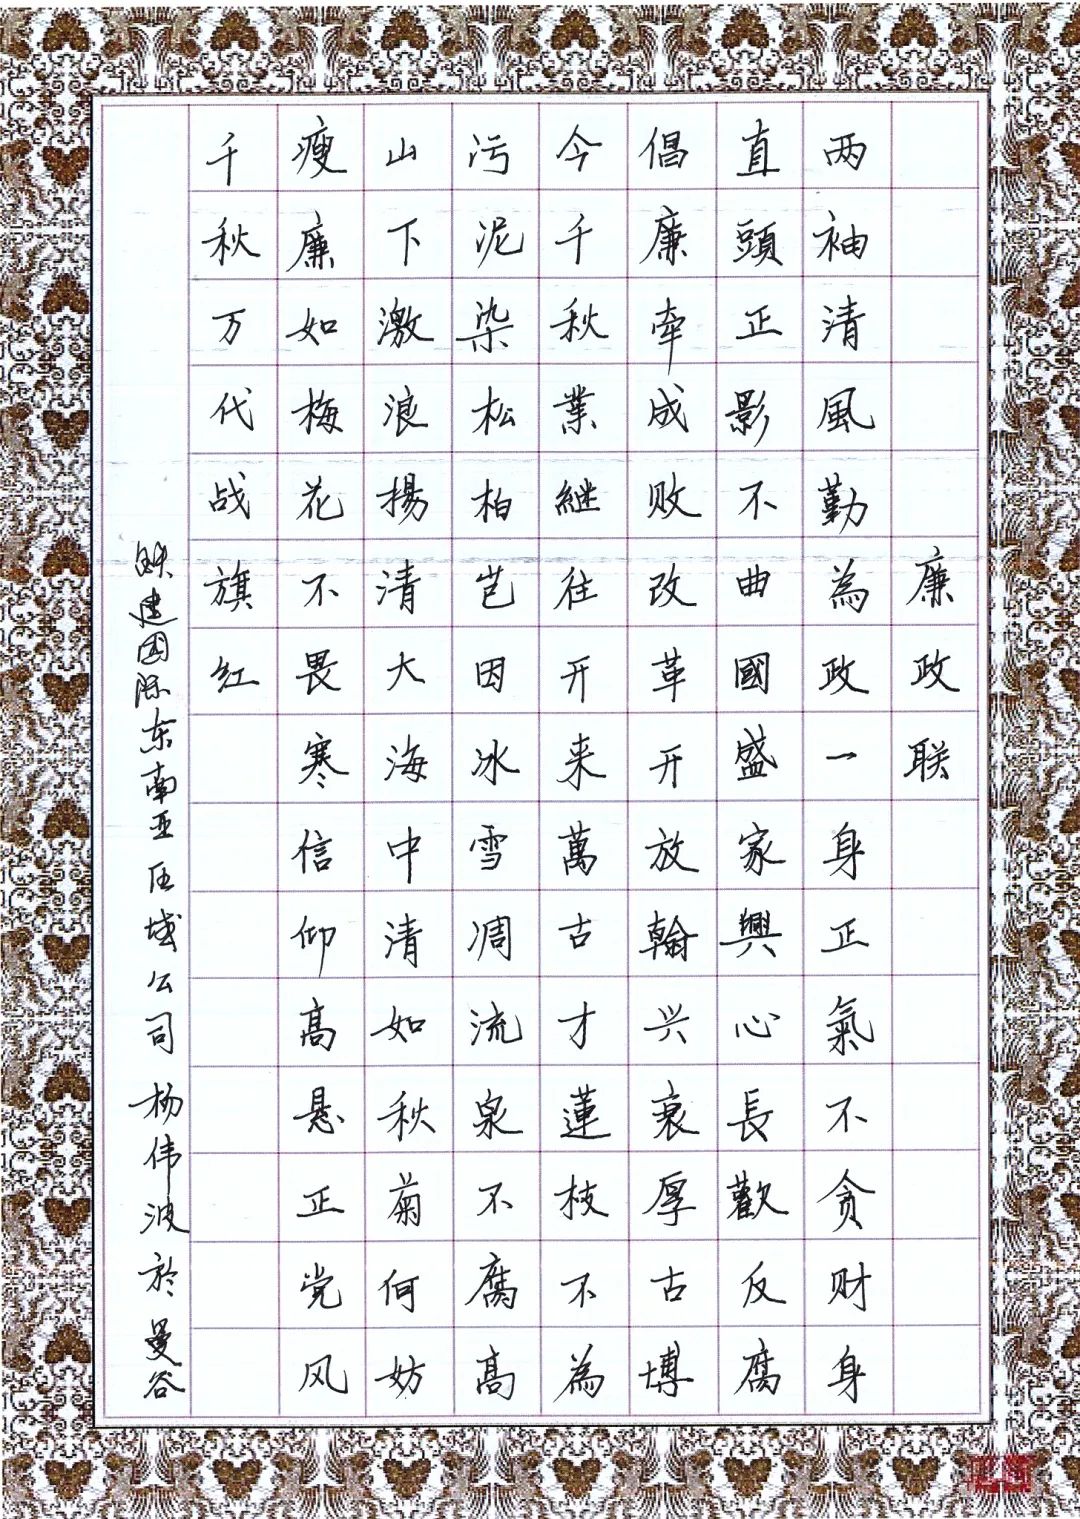 廉政联
两袖清風勤為政一身正氣不贪财身
直頭正影不曲國盛家興心長歡反腐
倡廉牵成败改革开放翰兴衰厚古博
今千秋業継往开来萬古才蓮枝不為
污泥染松柏岂因冰雪凋流泉不腐高
山下激浪揚清大海中清如秋菊何妨
瘦廉如梅花不畏寒信仰高悬正党风
千秋万代战旗红
铁建国际东南亚区域公司杨伟波於曼谷